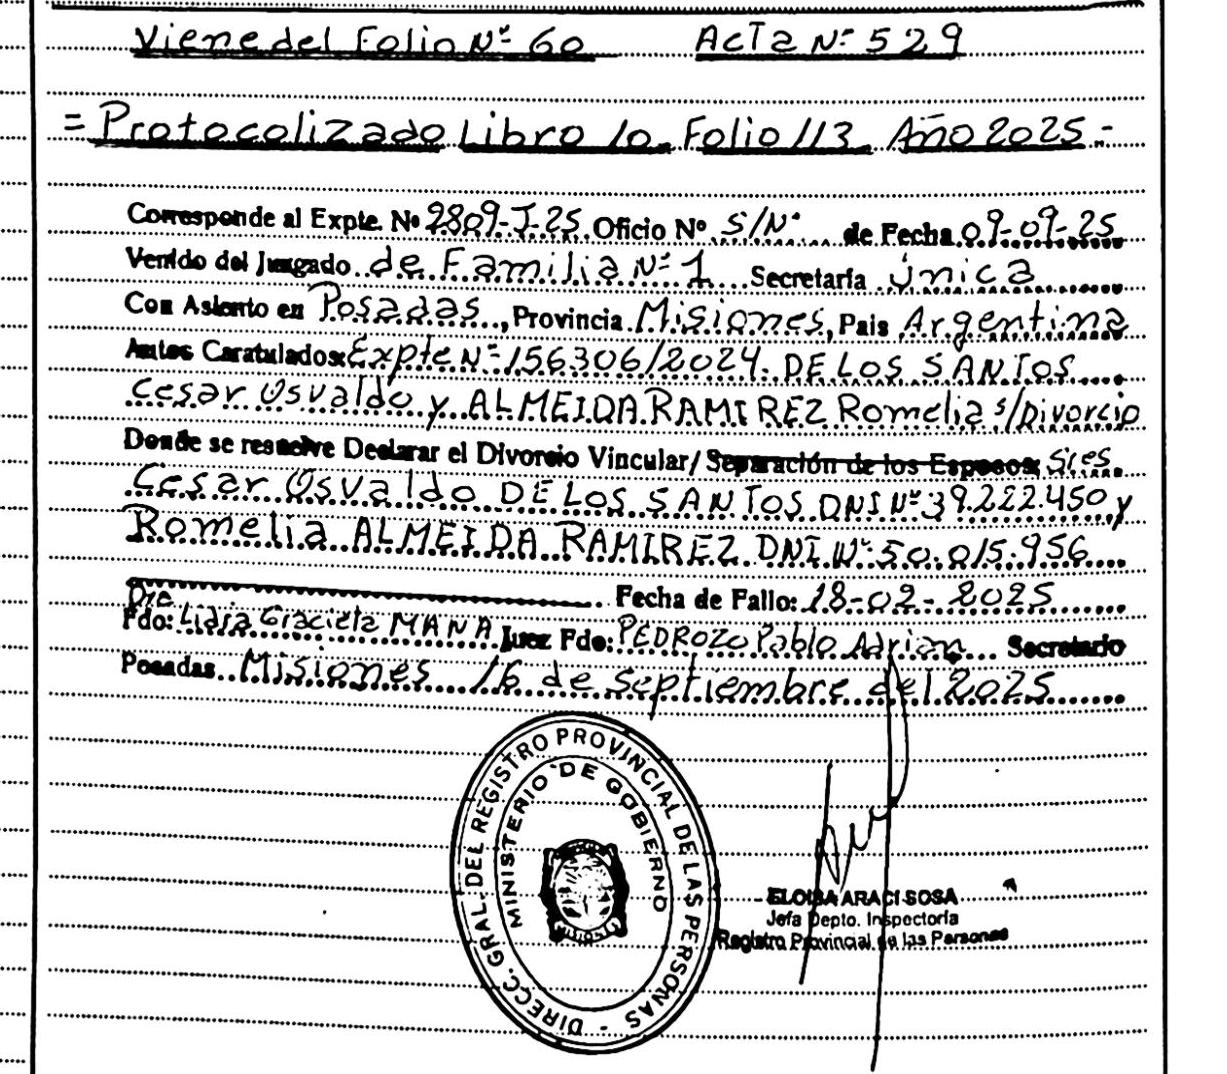 Viene del Folio Nº 60 Acta Nº 529
= Protocolizado Libro 10. Folio 113. Año 2025.-
Corresponde al Expte. Nº 2809-J-25. Oficio Nº S/Nº de Fecha 09-09-25
Venido del Juzgado de Familia Nº 1 Secretaría Única
Con Asiento en Posadas, Provincia Misiones, País Argentina
Autos Caratulados: Expte Nº 156306/2024. DE LOS SANTOS
Cesar Osvaldo y ALMEIDA RAMIREZ Romelia s/Divorcio
Donde se resuelve Declarar el Divorcio Vincular/ Separación de los Esposos: Sres.
Cesar Osvaldo DE LOS SANTOS DNI Nº 39.222.450 y
Romelia ALMEIDA RAMIREZ DNI Nº 50.015.956
Fecha de Fallo: 18-02-2025
Dra
Fdo: Lidia Graciela MANA Juez Fdo: PEDROZO Pablo Adrian Secretario
Posadas Misiones 16 de septiembre del 2025
DIRECC. GRAL. DEL REGISTRO PROVINCIAL DE LAS PERSONAS -
MINISTERIO DE GOBIERNO
ELOISA ARACI SOSA
Jefa Depto. Inspectoría
Registro Provincial de las Personas